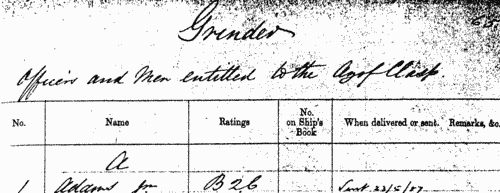 Grinder
Officers and Men entitled to the Ag of Clasp
No. Name Ratings No. on Ship's Book When delivered or sent. Remarks, &c.
A
1 Adams Jn B 2 C Sent 23/5/87